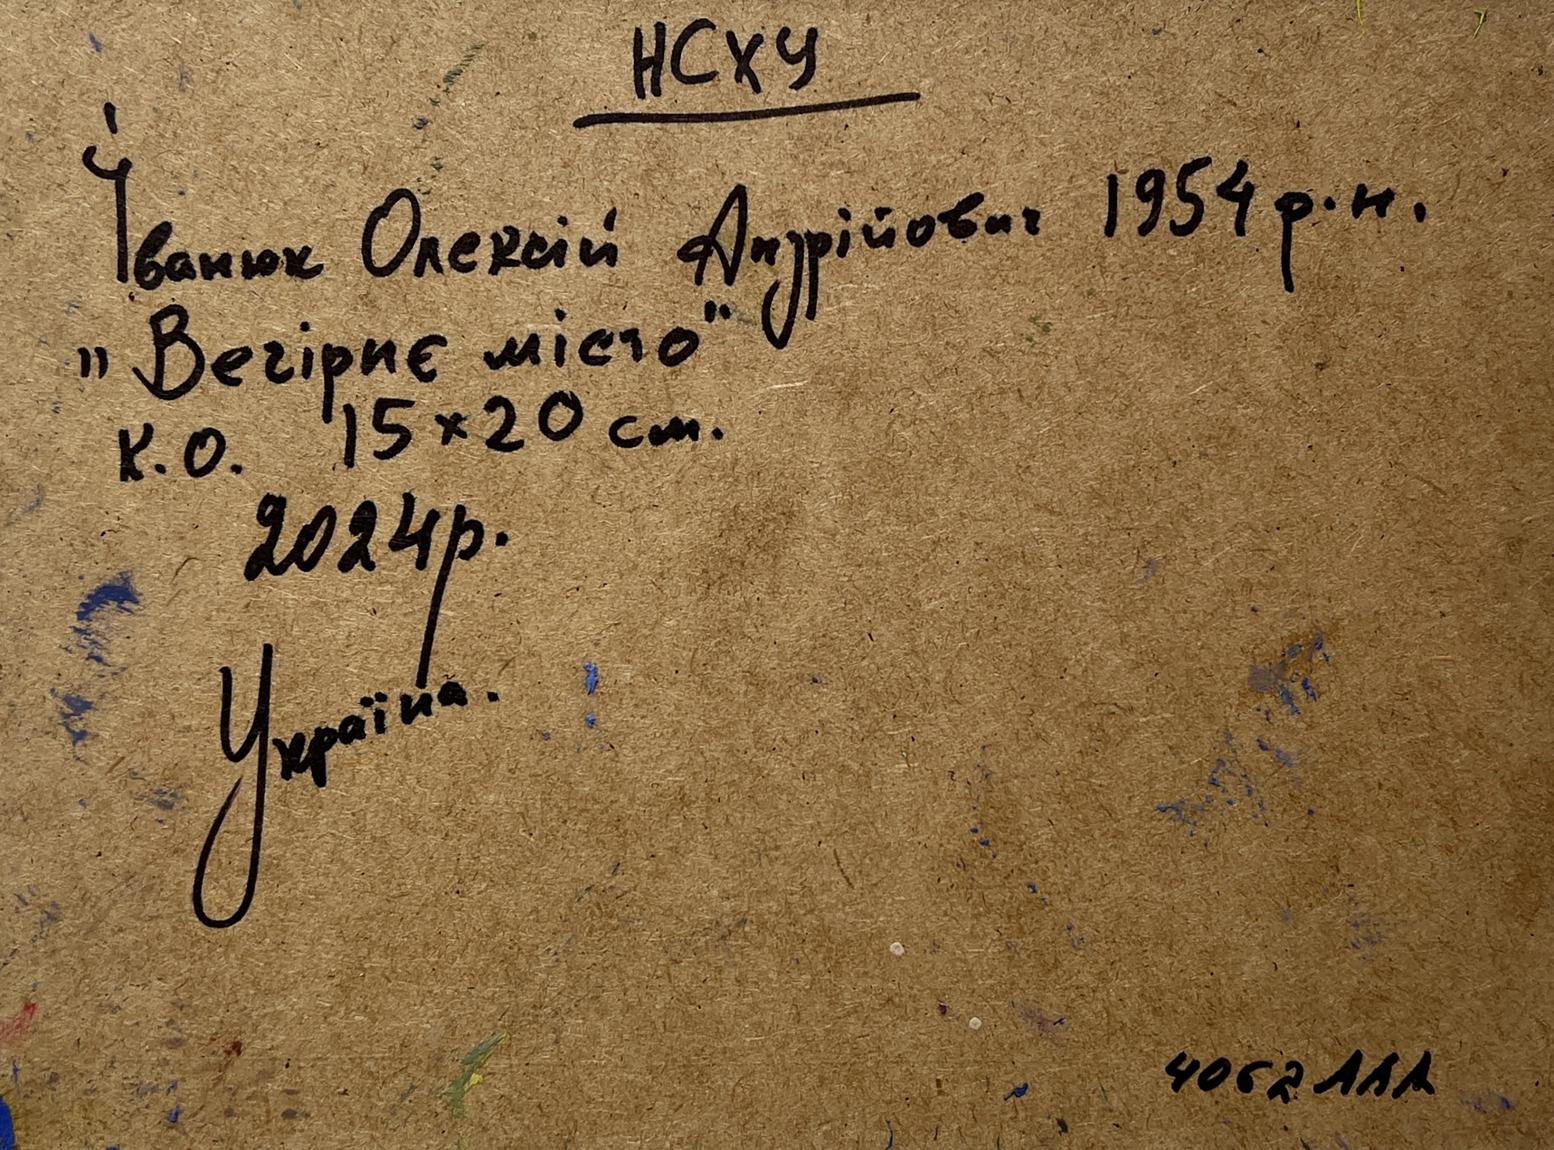 НСХУ
Іванюк Олексій Андрійович 1954 р.н.
"Вечірнє місто"
К.О. 15×20 см.
2024р.
Україна.
4062 ААА